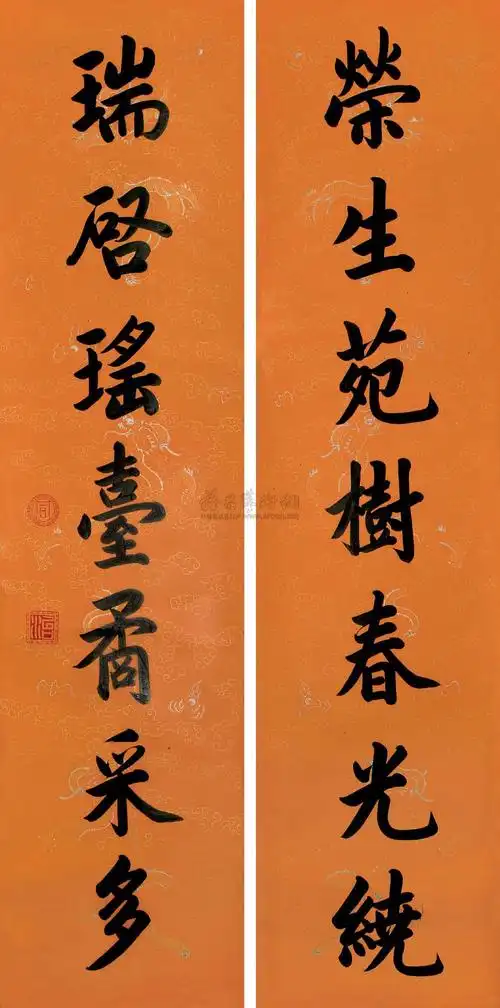 榮生苑樹春光繞
瑞啓瑤臺矞采多